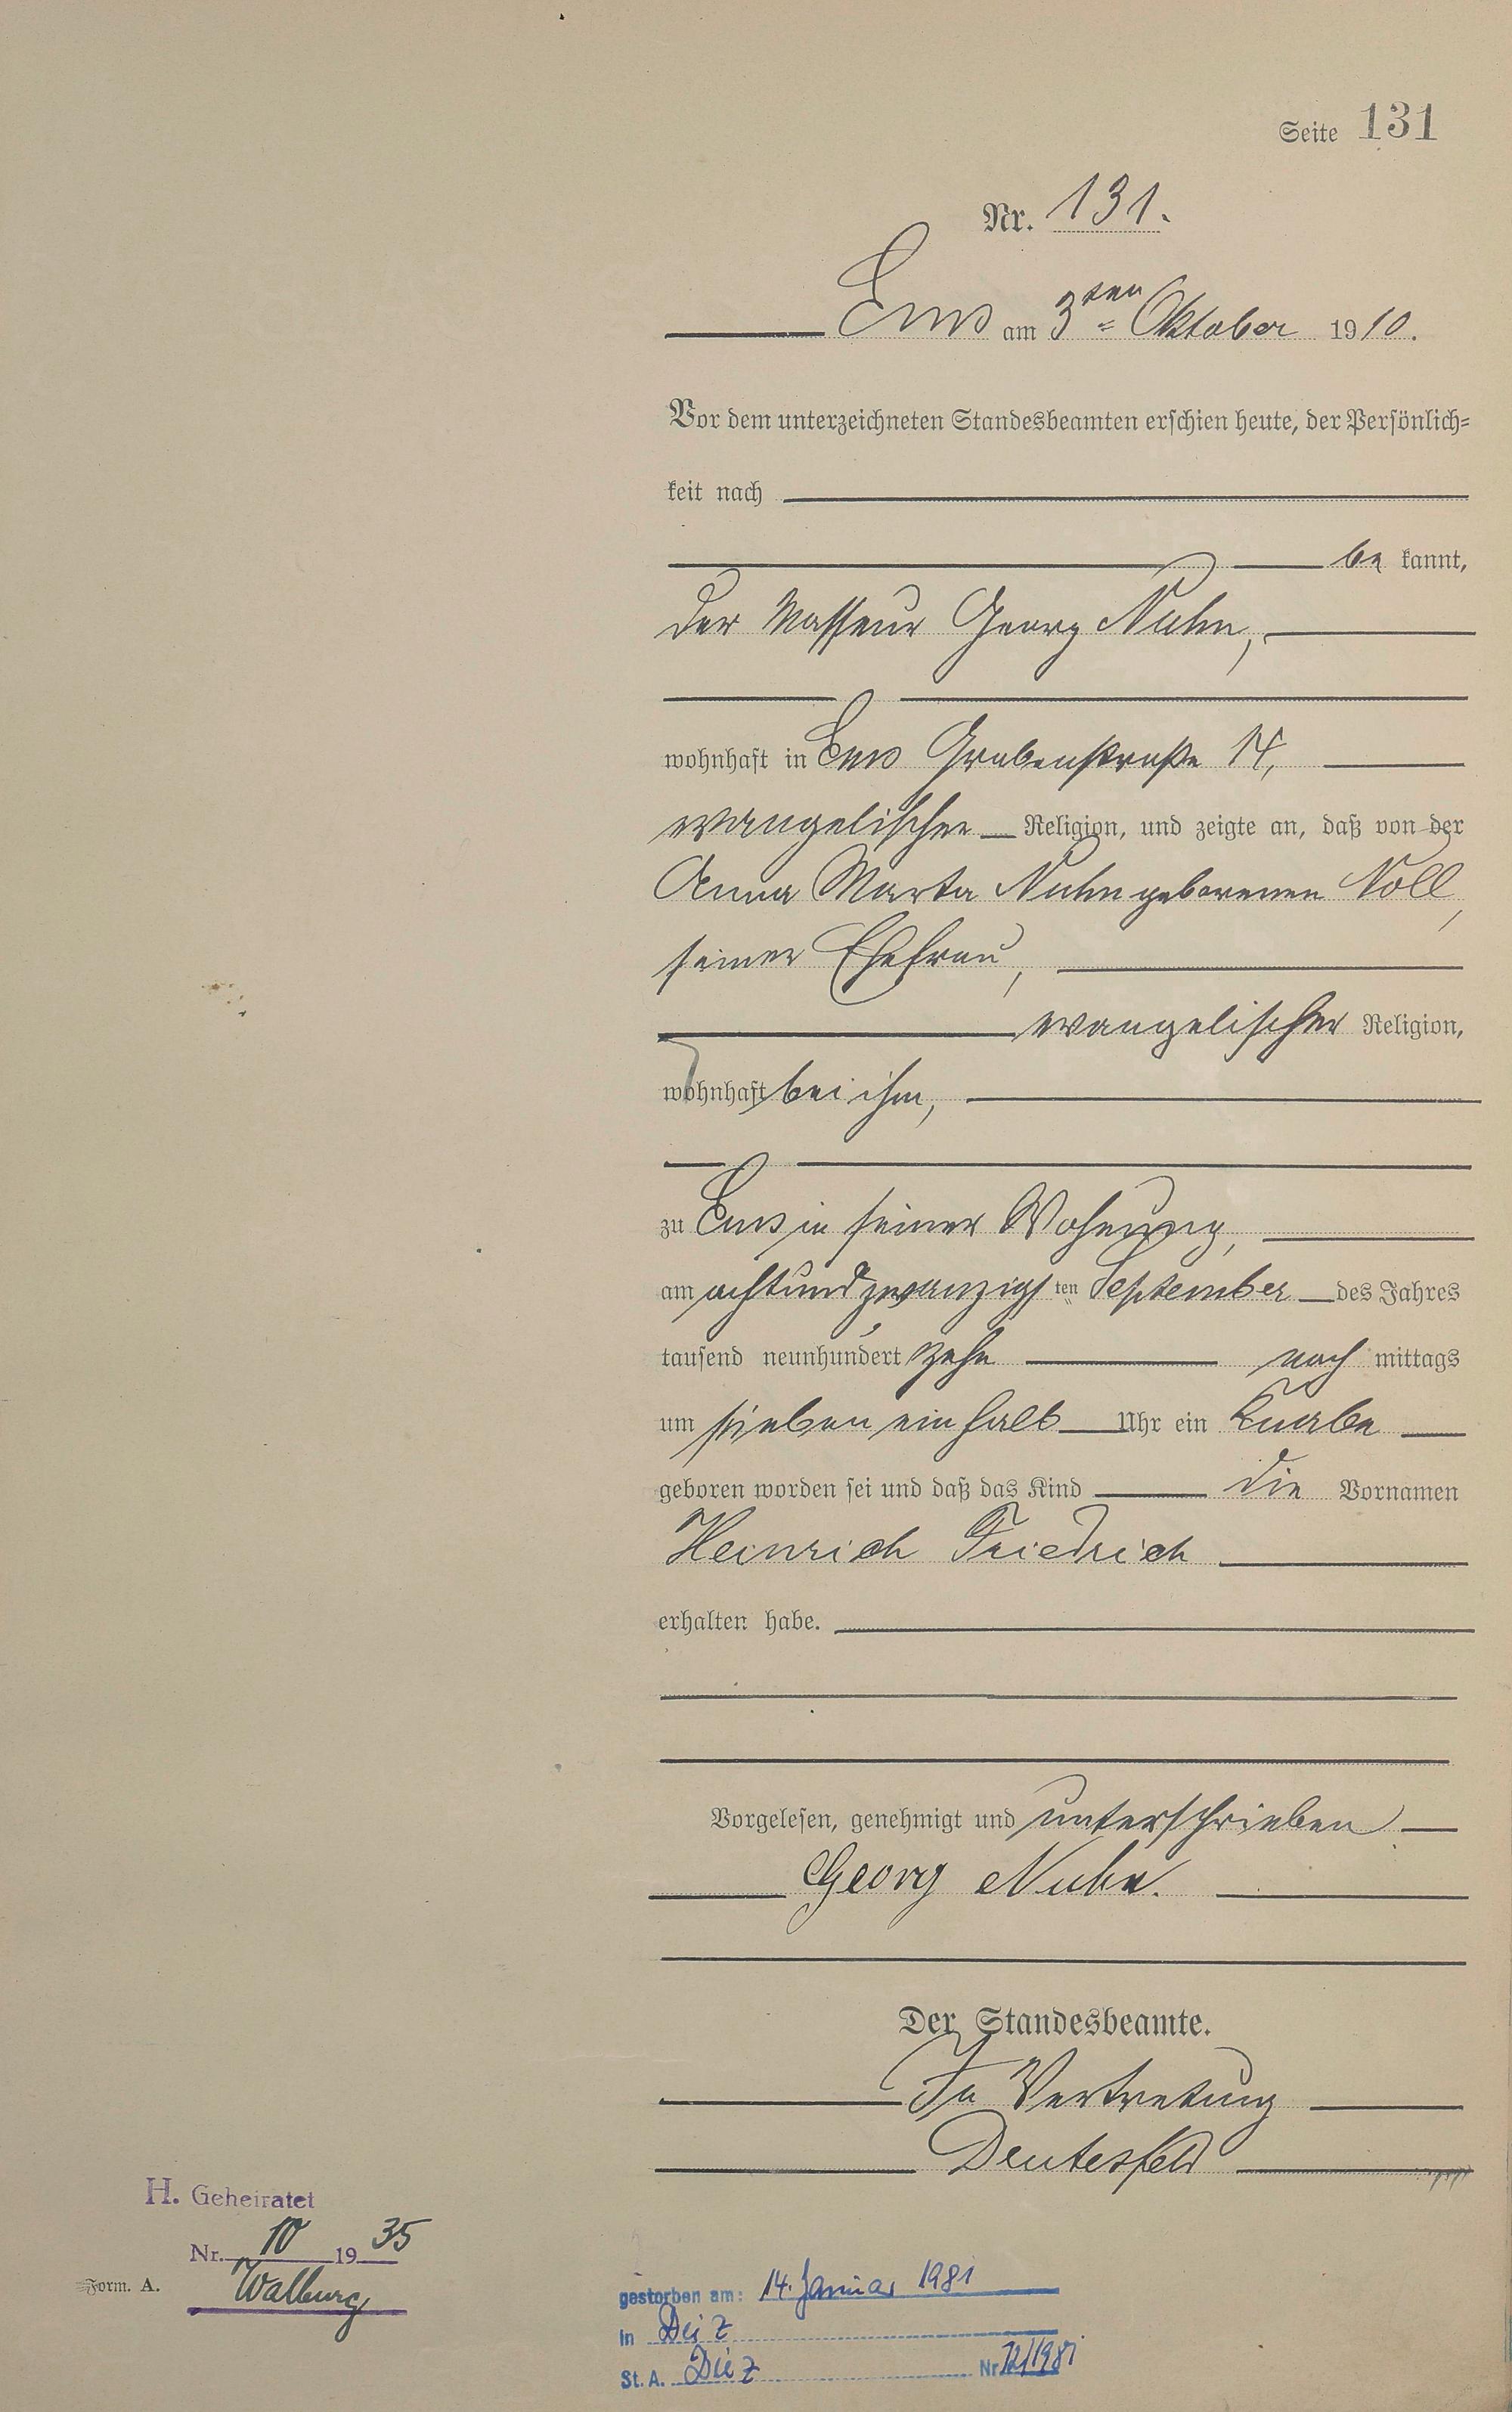 Seite 131
Nr. 131.
Ems am 3ten Oktober 1910.
Vor dem unterzeichneten Standesbeamten erschien heute, der Persönlich-
keit nach
be kannt,
der Masseur Georg Nuhn,
wohnhaft in Ems Grabenstraße 14,
evangelischer Religion, und zeigte an, daß von der
Anna Marta Nuhn geborenen Noll,
seiner Ehefrau,
evangelischer Religion,
wohnhaft bei ihm,
zu Ems in seiner Wohnung,
am achtundzwanzigsten September des Jahres
tausend neunhundert zehn nach mittags
um sieben einhalb Uhr ein Knabe
geboren worden sei und daß das Kind die Vornamen
Heinrich Friedrich
erhalten habe.
Vorgelesen, genehmigt und unterschrieben
Georg Nuhn.
Der Standesbeamte.
In Vertretung
Deutesfeld
H. Geheiratet
Nr. 10 1935
Form. A.
Walburg
gestorben am: 14. Januar 1981
in Diez
St. A. Diez Nr. 12/1981